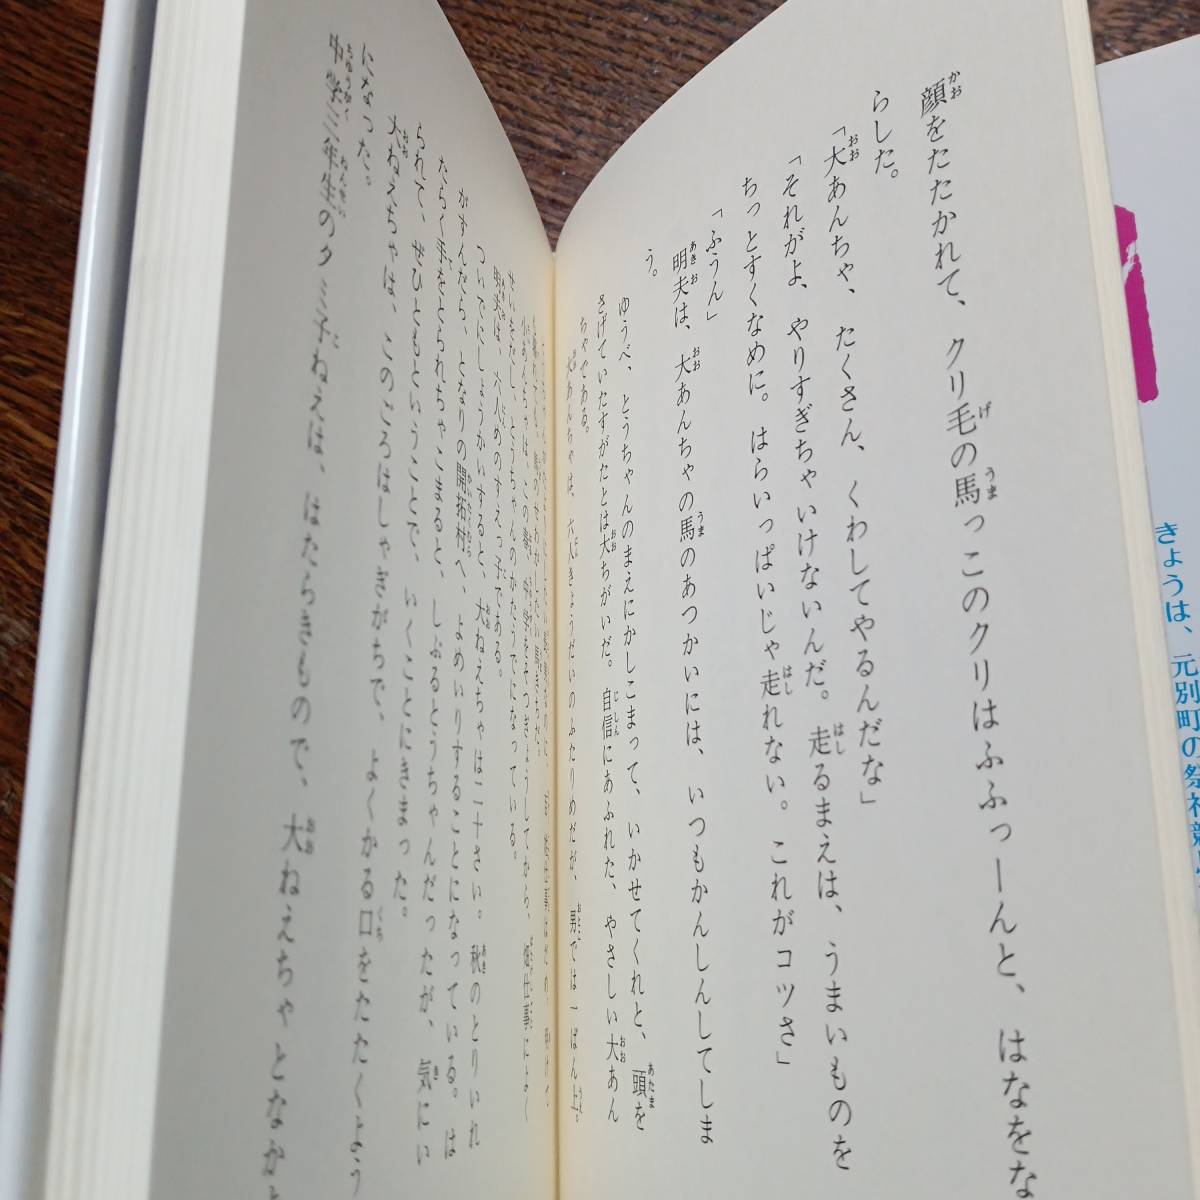 顔をたたかれて、クリ毛の馬っこのクリはふふっーんと、はなをな
らした。
「大あんちゃ、たくさん、くわしてやるんだな」
「それがよ、やりすぎちゃいけないんだ。走るまえは、うまいものを
ちっとすくなめに。はらいっぱいじゃ走れない。これがコツさ」
「ふうん」
明夫は、大あんちゃの馬のあつかいには、いつもかんしんしてしま
う。
ゆうべ、とうちゃんのまえにかしこまって、いかせてくれと、頭を
さげていたすがたとは大ちがいだ。自信にあふれた、やさしい大あん
ちゃである。
大あんちゃは、六人きょうだいのふたりめだが、男では一ばん上。
小あんちゃは、この春、中学をそつぎょうしてから、畑仕事によく
せいをだし、とうちゃんのかたうでになっている。
明夫は、六人めのすえっ子である。
ついでにしょうかいすると、大ねえちゃは二十さい。秋のとりいれ
がすんだら、となりの開拓村へ、よめいりすることになっている。は
たらく手をとられちゃこまると、しぶるとうちゃんだったが、気にい
られて、ぜひともということで、いくことにきまった。
大ねえちゃは、このごろはしゃぎがちで、よくかる口をたたくよう
になった。
中学三年生のタミ子ねえは、はたらきもので、大ねえちゃとなかが
きょうは、元別町の祭